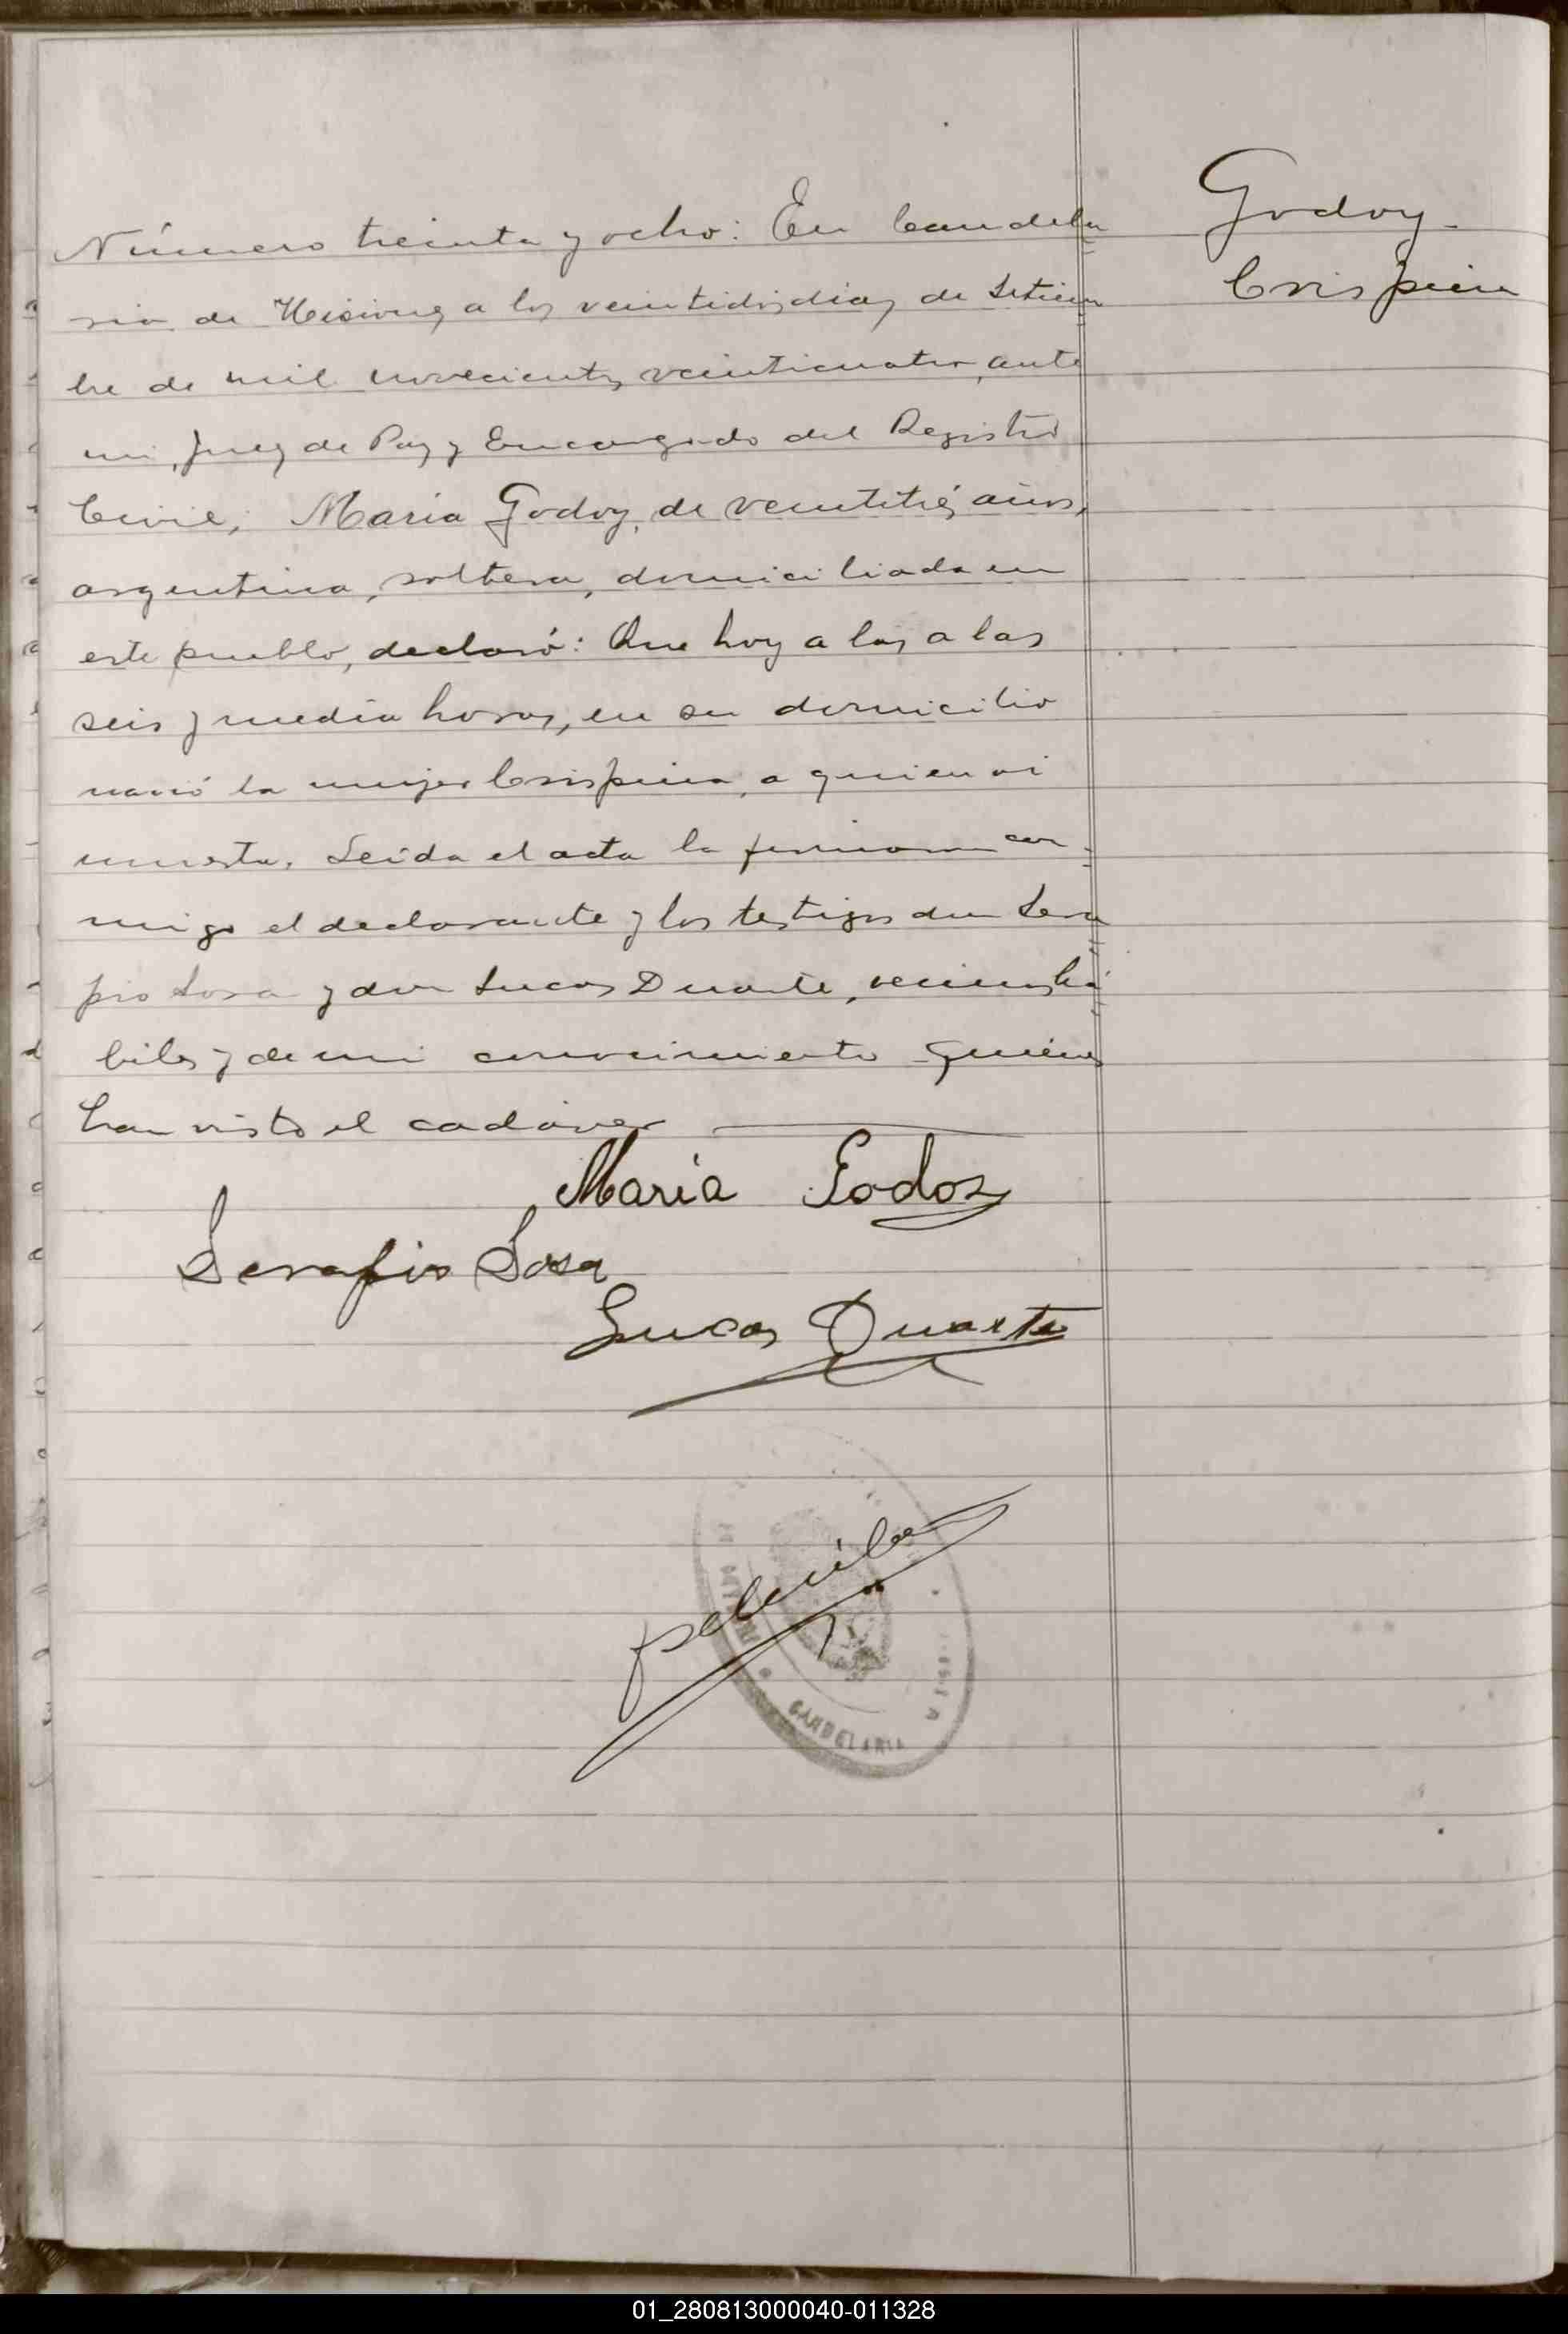 Godoy
Crispina
Número treinta y ocho: En Candela
ria de Misiones a los veintidos dias de Setiem
bre de mil novecientos veinticuatro, ante
mi, Juez de Paz y Encargado del Registro
Civil, Maria Godoy, de veintitrés años,
argentina, soltera, domiciliada en
este pueblo, declaró: Que hoy a las a las
seis y media horas, en su domicilio
nació la mujer Crispina, a quien vi
muerta. Leida el acta la firmaron con
migo el declarante y los testigos don Sera
pio Sosa y don Lucas Duarte, vecinos há
biles y de mi conocimiento quienes
han visto el cadáver
Maria Godoy
Serafio Sosa
Lucas Duarte
CANDELARIA
01_280813000040-011328